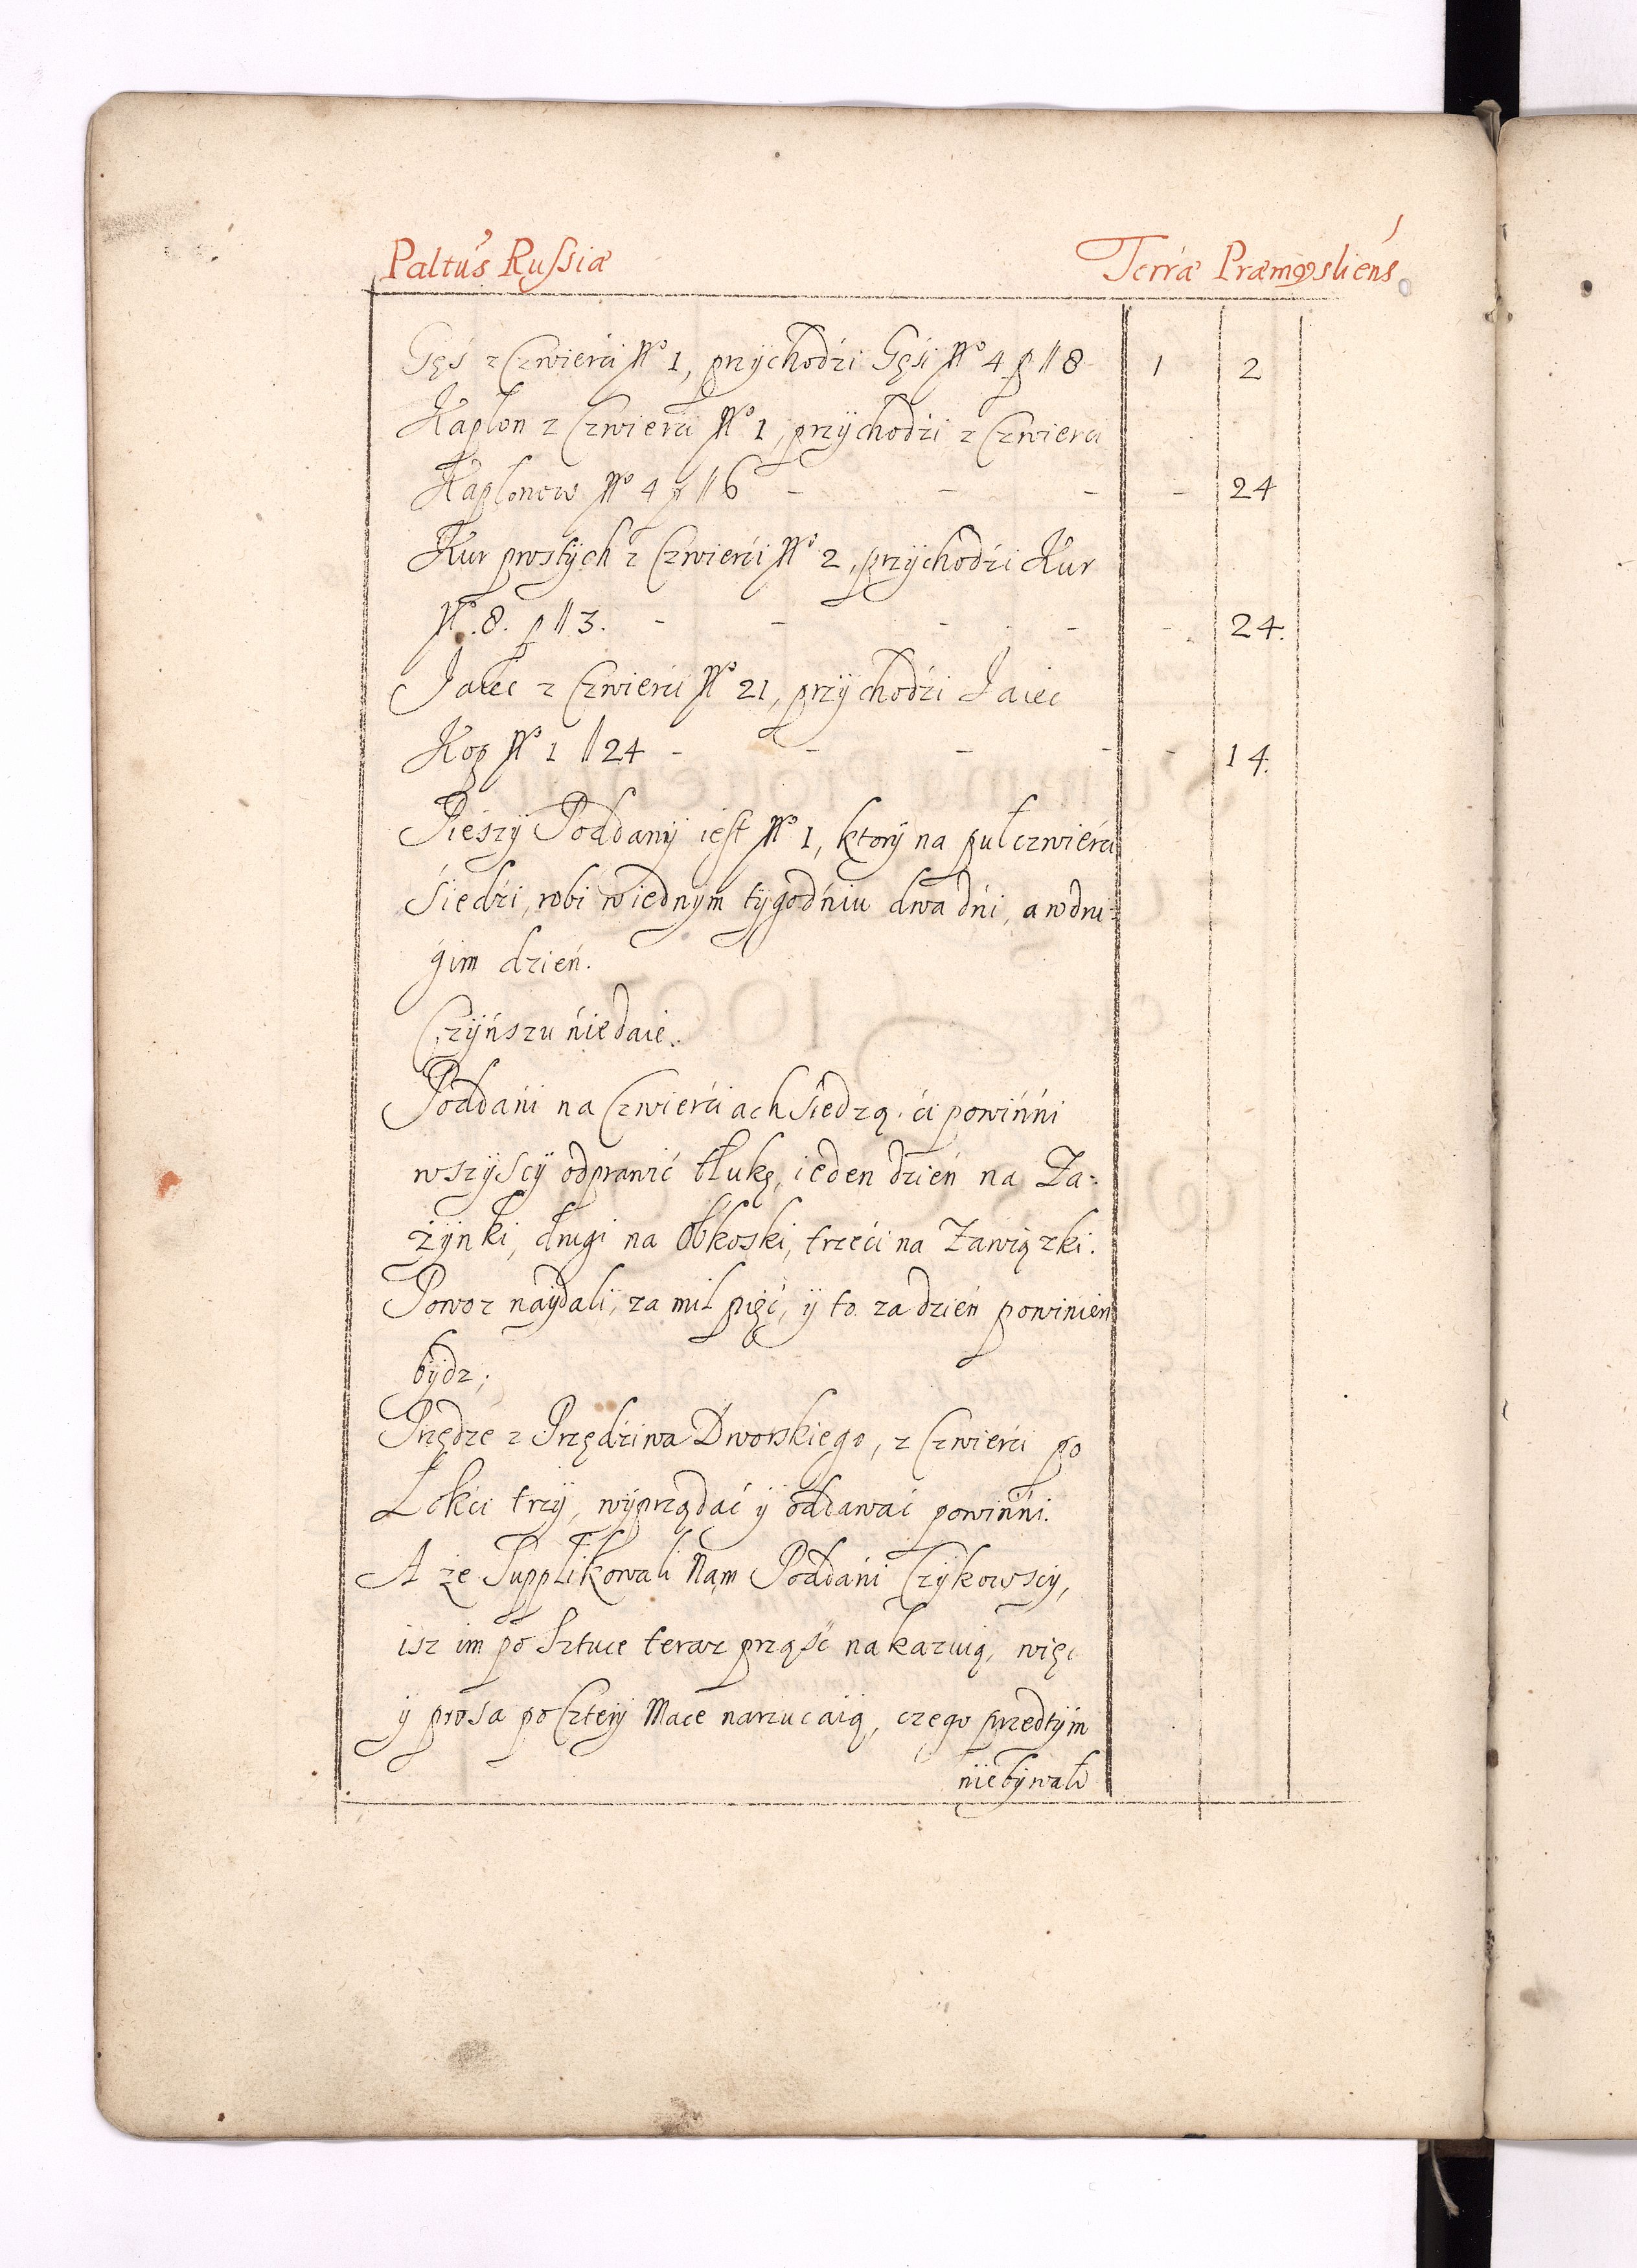 Paltus Russiæ Terræ Præmysliens
Gęś z Czwierći No 1, przÿchodźi Gęśi No 4 p // 8 1 2
Kapłon z Czwierći No 1, przÿchodźi z Czwierći
Kapłonow No 4 p // 6 - - - - 24
Kur prostÿch z Czwierći No 2, przÿchodźi Kur
No. 8. p // 3. - - - - - 24.
Jaiec z Czwierći No 21, przÿchodźi Jaiec
Kop No 1 // 24 - - - - - 14.
Pieszÿ Poddanÿ iest No 1, ktorÿ na pułczwierći
śiedźi, robi w iednÿm tÿgodńiu dwa dńi, a w dru-
gim dzień.
Czÿńszu ńiedaie.
Poddańi na Czwierćiach śiedzą. ći powinńi
wszÿscÿ odprawić tłukę, ieden dzień na Za-
żÿnki, drugi na Obkoski, trzeći na Zawiązki.
Powoz naÿdali, za mil pięć, ÿ to za dzień powinien
bÿdz;
Przędze z Przędźiwa Dworskiego, z Czwierći po
Łokći trzÿ, wÿprządać ÿ oddawać powinńi.
A że Supplikowali Nam Poddańi Czÿkowscÿ,
isz im po Sztuce teraz prząść nakazuią, więc
ÿ prosa po Czterÿ Mace narzucaią, czego przedtÿm
niebÿwało